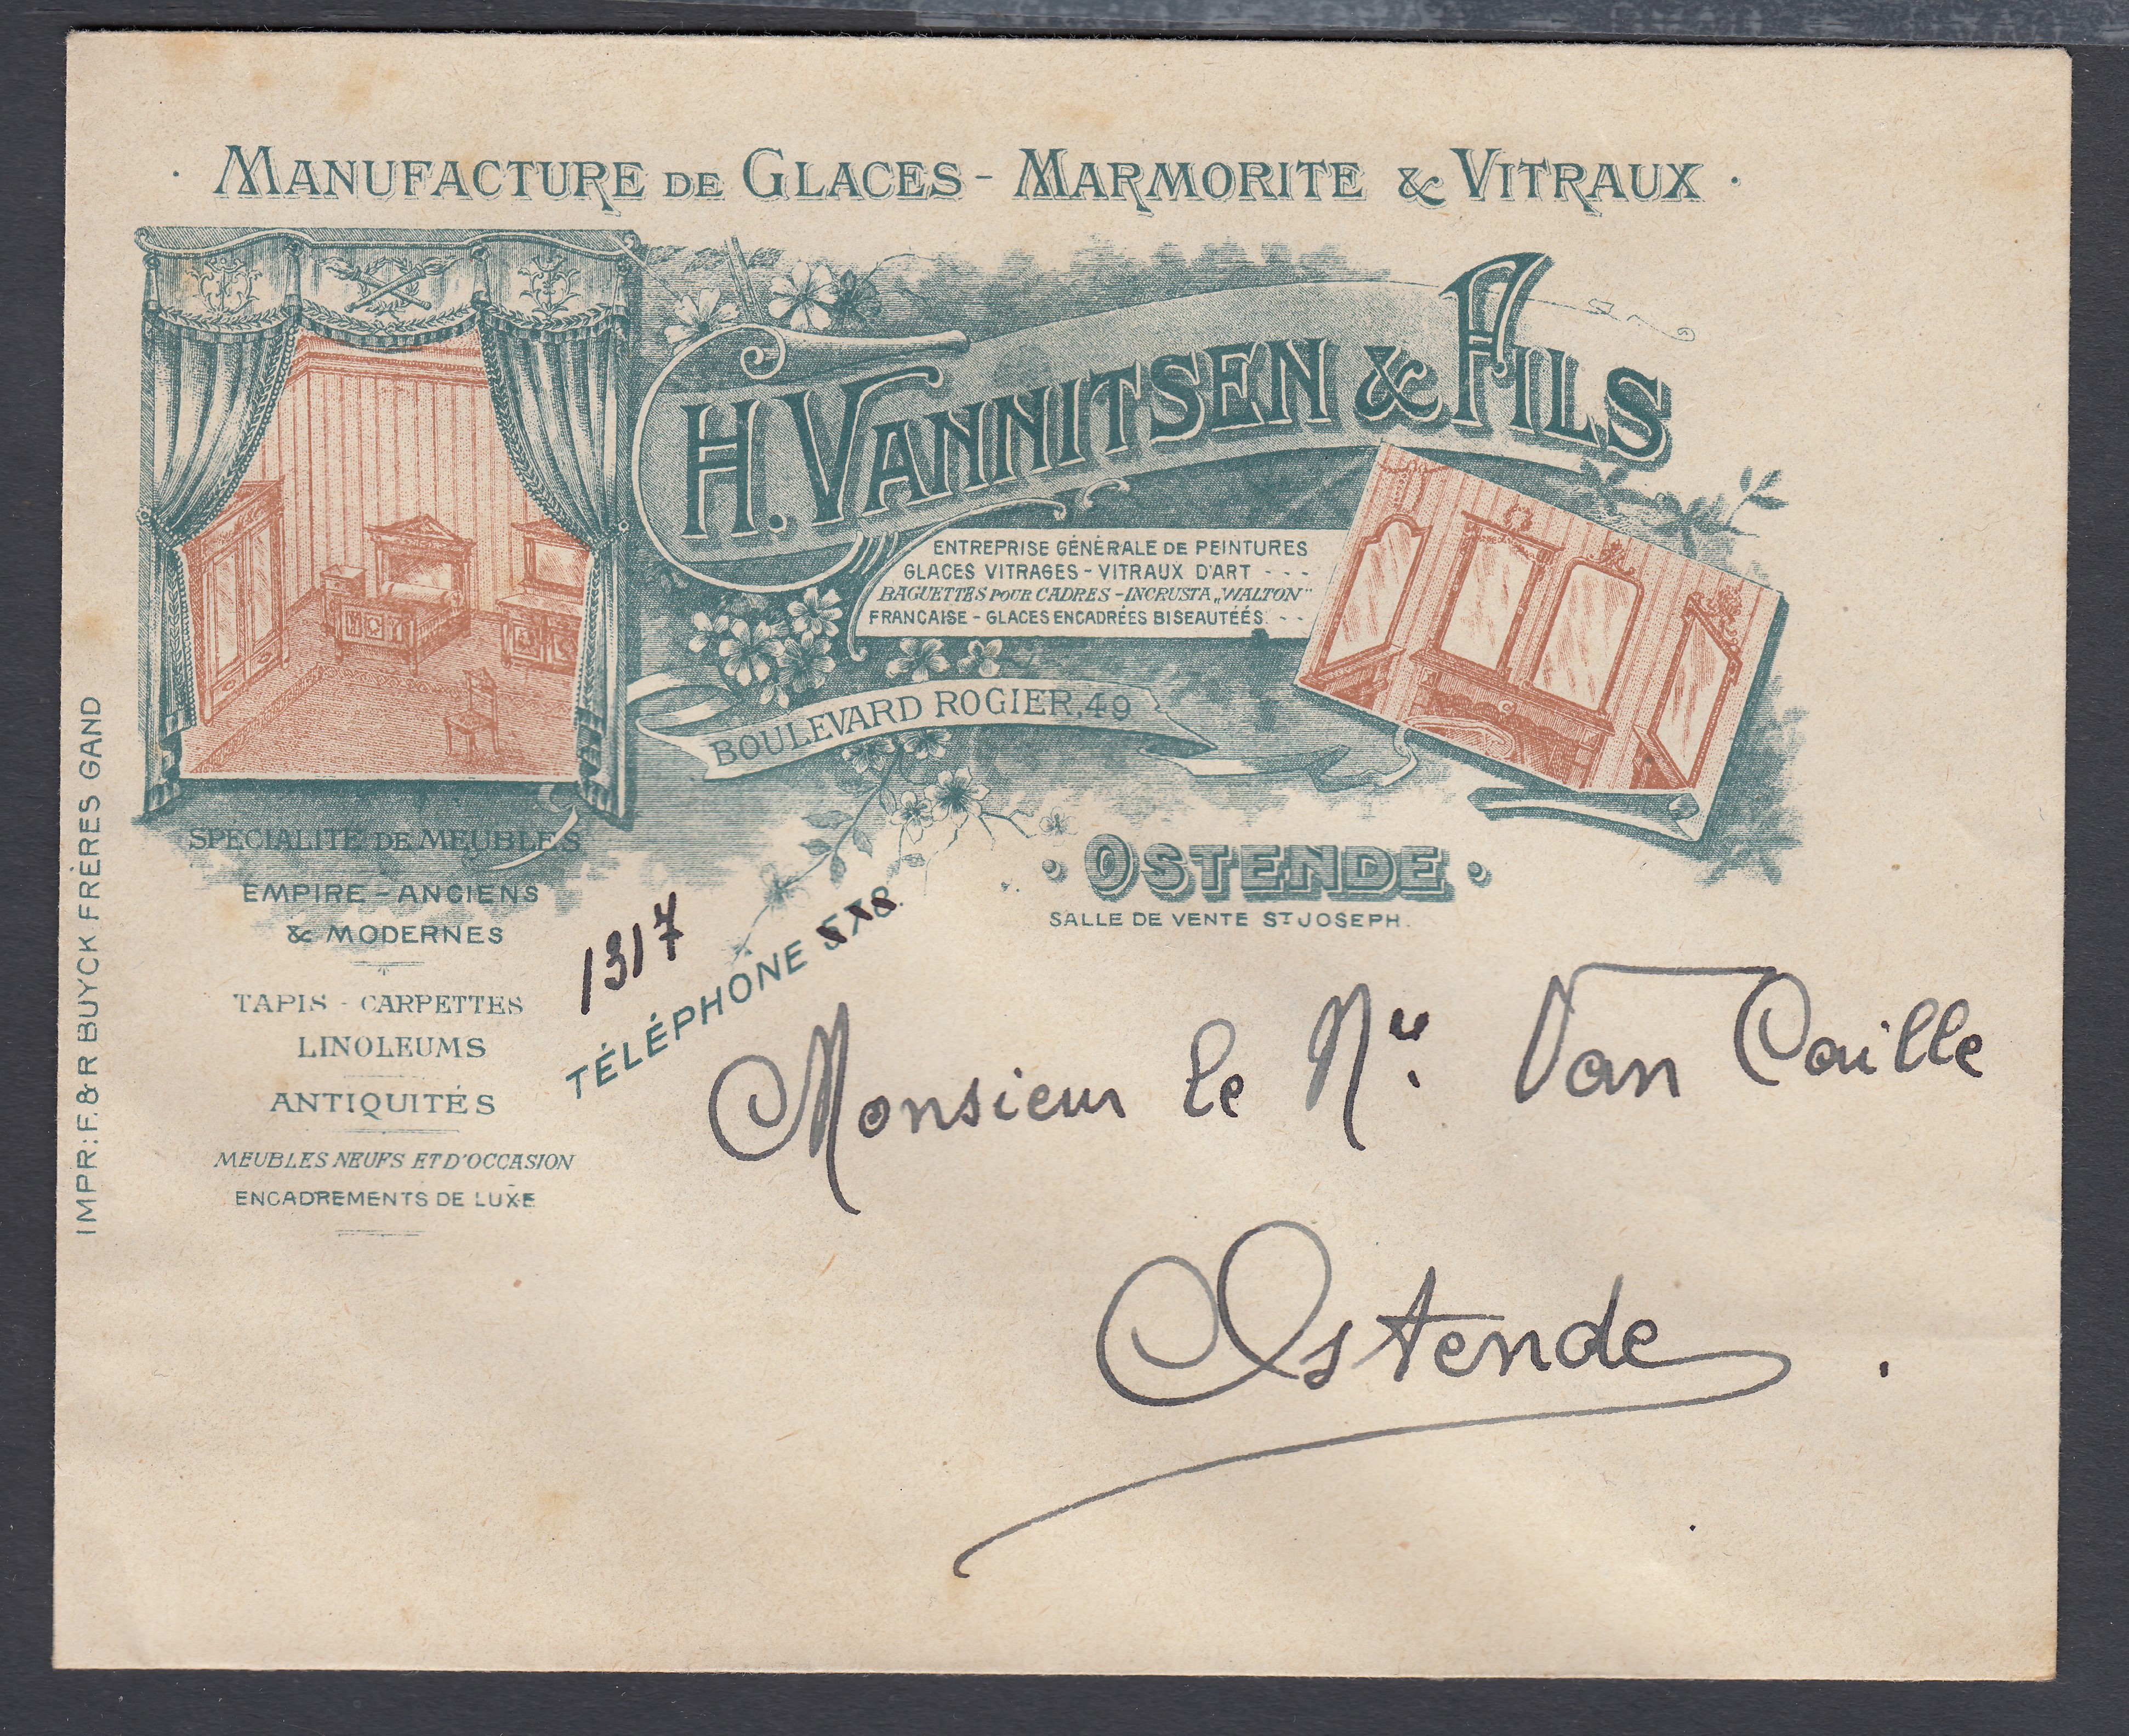 · MANUFACTURE DE GLACES - MARMORITE & VITRAUX ·
H. VANNITSEN & FILS
ENTREPRISE GÉNÉRALE DE PEINTURES
GLACES VITRAGES - VITRAUX D'ART - - -
BAGUETTES POUR CADRES - INCRUSTA „WALTON"
FRANCAISE - GLACES ENCADRÉES BISEAUTÉÉS. - -
BOULEVARD ROGIER, 49
· OSTENDE ·
SALLE DE VENTE ST JOSEPH.
SPÉCIALITÉ DE MEUBLES
EMPIRE - ANCIENS
& MODERNES
TAPIS - CARPETTES
LINOLEUMS
ANTIQUITÉS
MEUBLES NEUFS ET D'OCCASION
ENCADREMENTS DE LUXE
1317
TÉLÉPHONE
IMPR: F. & R BUYCK FRÈRES GAND
Monsieur le Nre Van Caille
Ostende .